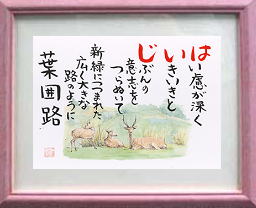 はい慮が深く
いきいきと
じぶんの
意志を
つらぬいて
新緑につつまれた
広く大きな
路のように
葉 囲 路